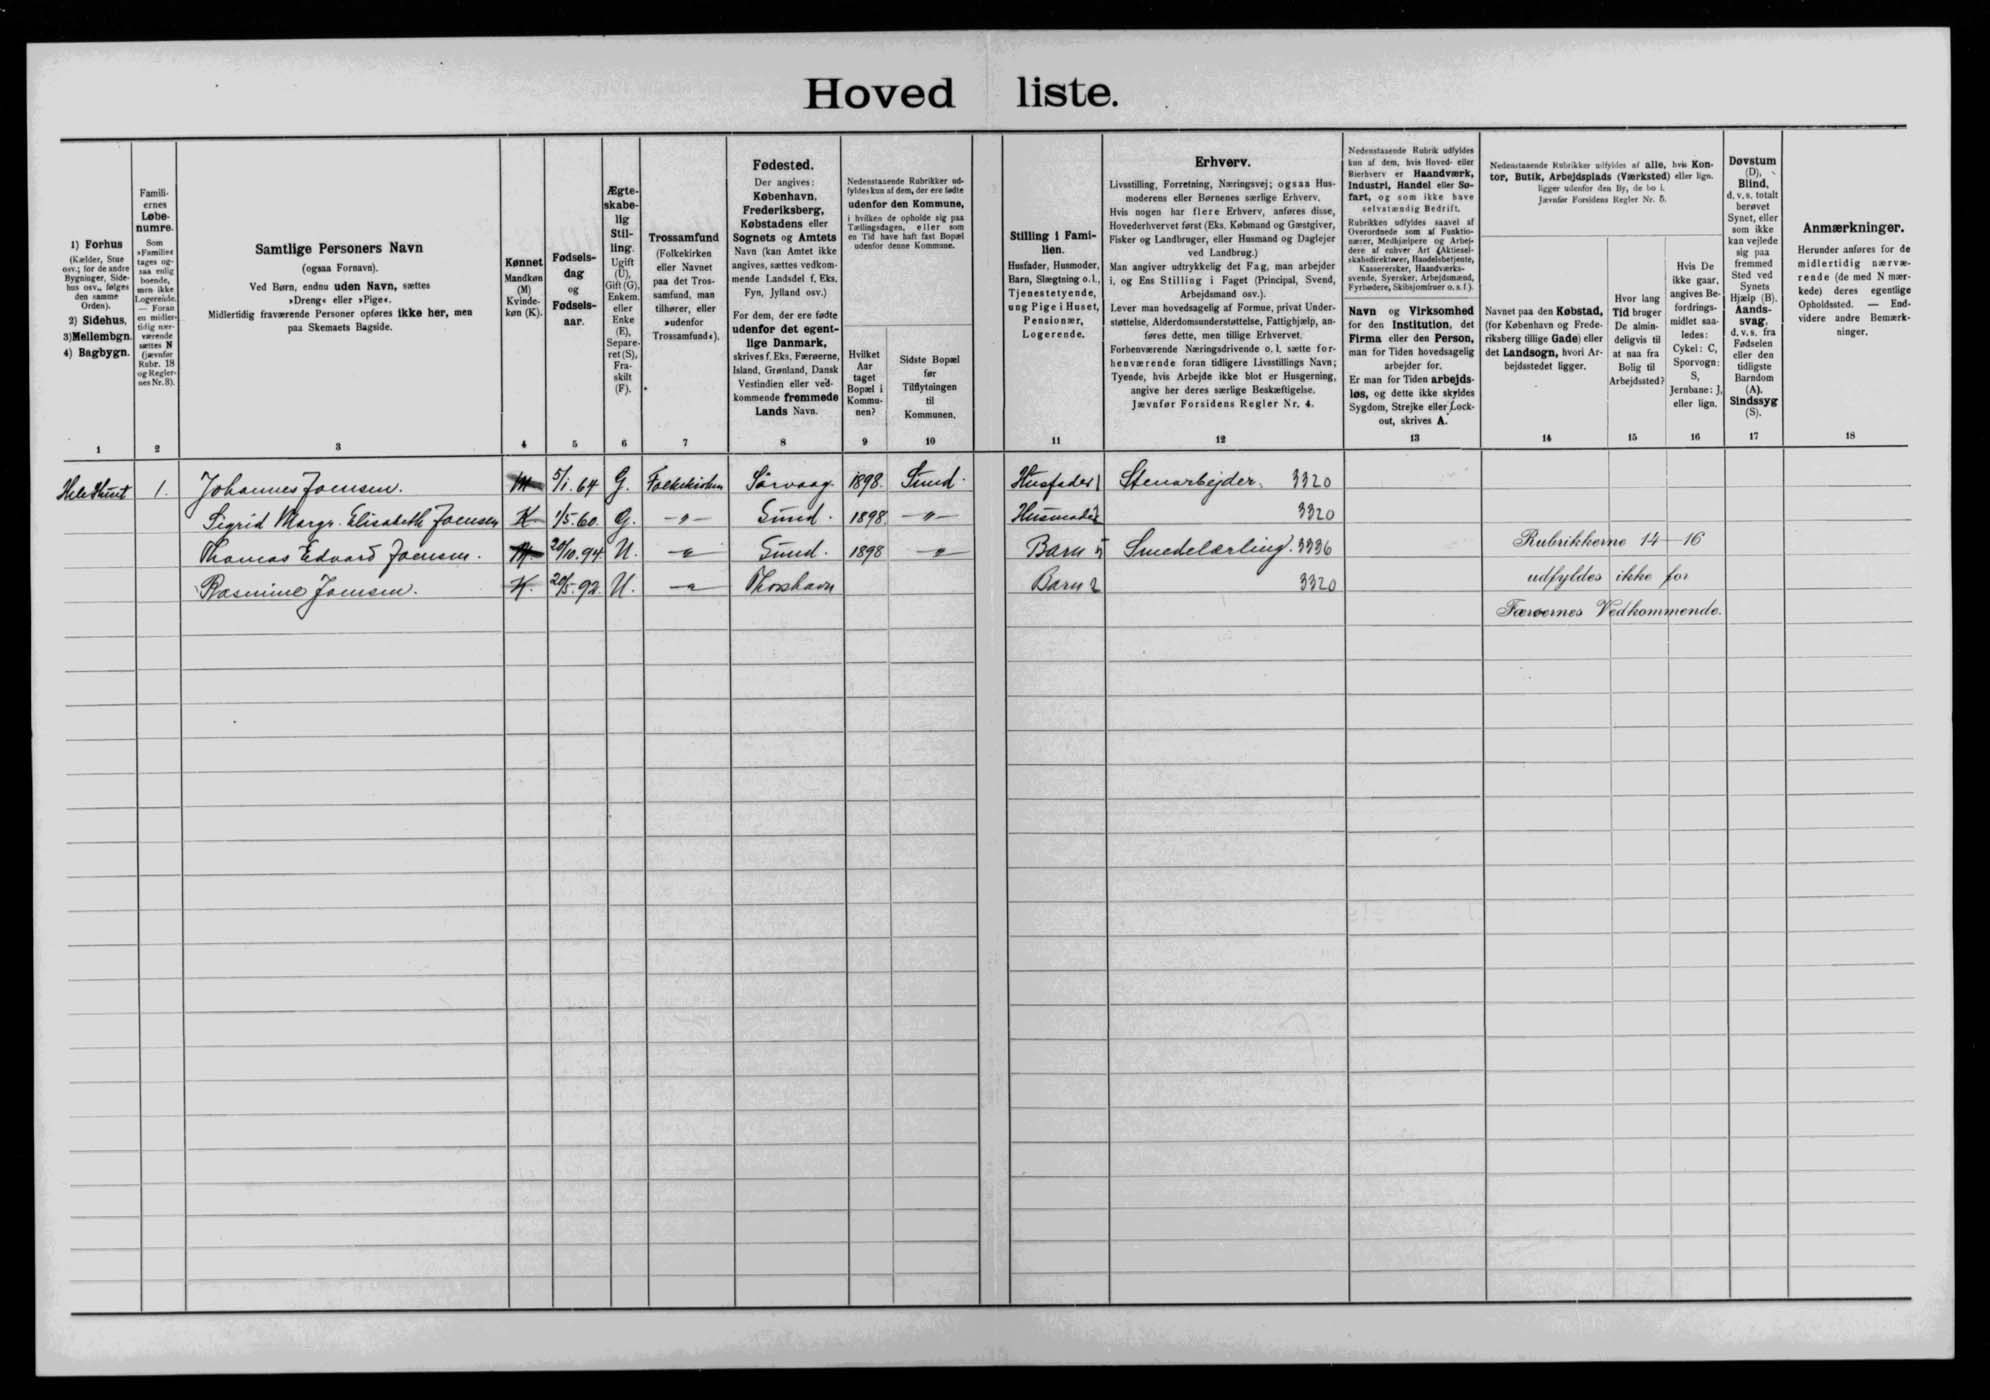 Hovedliste.
1) Forhus
(Kælder, Stue
osv.; for de andre
Bygninger, Side-
hus osv., følges
den samme
Orden).
2) Sidehus,
3) Mellembgn.
4) Bagbygn.
1
Famili-
ernes
Løbe-
numre.
Som
»Familie«
tages og-
saa enlig
boende,
men ikke
Logerende.
— Foran
en midler-
tidig nær-
værende
sættes N
(jævnfør
Rubr. 18
og Regler-
nes Nr. 8).
2
Samtlige Personers Navn
(ogsaa Fornavn).
Ved Børn, endnu uden Navn, sættes
»Dreng« eller »Pige«.
Midlertidig fraværende Personer opføres ikke her, men
paa Skemaets Bagside.
3
Kønnet
Mandkøn
(M)
Kvinde-
køn (K).
4
Fødsels-
dag
og
Fødsels-
aar.
5
Ægte-
skabe-
lig
Stil-
ling.
Ugift
(U),
Gift (G),
Enkem.
eller
Enke
(E),
Separe-
ret (S),
Fra-
skilt
(F).
6
Trossamfund
(Folkekirken
eller Navnet
paa det Tros-
samfund, man
tilhører, eller
»udenfor
Trossamfund«).
7
Fødested.
Der angives:
København,
Frederiksberg,
Købstadens eller
Sognets og Amtets
Navn (kan Amtet ikke
angives, sættes vedkom-
mende Landsdel f. Eks.
Fyn, Jylland osv.)
For dem, der ere fødte
udenfor det egent-
lige Danmark,
skrives f. Eks. Færøerne,
Island, Grønland, Dansk
Vestindien eller ved-
kommende fremmede
Lands Navn.
8
Nedenstaaende Rubrikker ud-
fyldes kun af dem, der ere fødte
udenfor den Kommune,
i hvilken de opholde sig paa
Tællingsdagen, eller som
en Tid have haft fast Bopæl
udenfor denne Kommune.
Hvilket
Aar
taget
Bopæl i
Kommu-
nen?
9
Sidste Bopæl
før
Tilflytningen
til
Kommunen.
10
Stilling i Fami-
lien.
Husfader, Husmoder,
Barn, Slægtning o. l.,
Tjenestetyende,
ung Pige i Huset,
Pensionær,
Logerende.
11
Erhverv.
Livsstilling, Forretning, Næringsvej; ogsaa Hus-
moderens eller Børnenes særlige Erhverv.
Hvis nogen har flere Erhverv, anføres disse,
Hovederhvervet først (Eks. Købmand og Gæstgiver,
Fisker og Landbruger, eller Husmand og Daglejer
ved Landbrug.)
Man angiver udtrykkelig det Fag, man arbejder
i, og Ens Stilling i Faget (Principal, Svend,
Arbejdsmand osv.).
Lever man hovedsagelig af Formue, privat Under-
støttelse, Alderdomsunderstøttelse, Fattighjælp, an-
føres dette, men tillige Erhvervet.
Forhenværende Næringsdrivende o. l. sætte for-
henværende foran tidligere Livsstillings Navn;
Tyende, hvis Arbejde ikke blot er Husgerning,
angive her deres særlige Beskæftigelse.
Jævnfør Forsidens Regler Nr. 4.
12
Nedenstaaende Rubrik udfyldes
kun af dem, hvis Hoved- eller
Bierhverv er Haandværk,
Industri, Handel eller Sø-
fart, og som ikke have
selvstændig Bedrift.
Rubrikken udfyldes saavel af
Overordnede som af Funktio-
nærer, Medhjælpere og Arbej-
dere af enhver Art (Aktiesel-
skabsdirektører, Handelsbetjente,
Kassererrsker, Haandværks-
svende, Syersker, Arbejdsmænd,
Fyrbødere, Skibsjomfruer o. s. f.).
Navn og Virksomhed
for den Institution, det
Firma eller den Person,
man for Tiden hovedsagelig
arbejder for.
Er man for Tiden arbejds-
løs, og dette ikke skyldes
Sygdom, Strejke eller Lock-
out, skrives A.
13
Nedenstaaende Rubrikker udfyldes af alle, hvis Kon-
tor, Butik, Arbejdsplads (Værksted) eller lign.
ligger udenfor den By, de bo i.
Jævnfør Forsidens Regler Nr. 5.
Navnet paa den Købstad,
(for København og Frede-
riksberg tillige Gade) eller
det Landsogn, hvori Ar-
bejdsstedet ligger.
14
Hvor lang
Tid bruger
De almin-
deligvis til
at naa fra
Bolig til
Arbejdssted?
15
Hvis De
ikke gaar,
angives Be-
fordrings-
midlet saa-
ledes:
Cykel: C,
Sporvogn:
S,
Jernbane: J,
eller lign.
16
Døvstum
(D),
Blind,
d. v. s. totalt
berøvet
Synet, eller
som ikke
kan vejlede
sig paa
fremmed
Sted ved
Synets
Hjælp (B).
Aands-
svag,
d. v. s. fra
Fødselen
eller den
tidligste
Barndom
(A).
Sindssyg
(S).
17
Anmærkninger.
Herunder anføres for de
midlertidig nærvæ-
rende (de med N mær-
kede) deres egentlige
Opholdssted. — End-
videre andre Bemærk-
ninger.
18
1. Johannes Joensen. M 5/1. 64 G. Folkekirken Sørvaag. 1898. Sund. Husfader 1 Stenarbejder. 3320
Sigrid Margr. Elisabeth Joensen K 1/5. 60. G. -"- Sund. 1898. -"- Husmoder 3320
Thomas Edvard Joensen. M 20/10. 94 U. -"- Sund. 1898 -"- Barn 5 Smedelærling. 3336
Rasmine Joensen. K. 20/5. 92. U. -"- Thorshavn Barn 2 3320
Rubrikkerne 14-16
udfyldes ikke for
Færøernes Vedkommende.